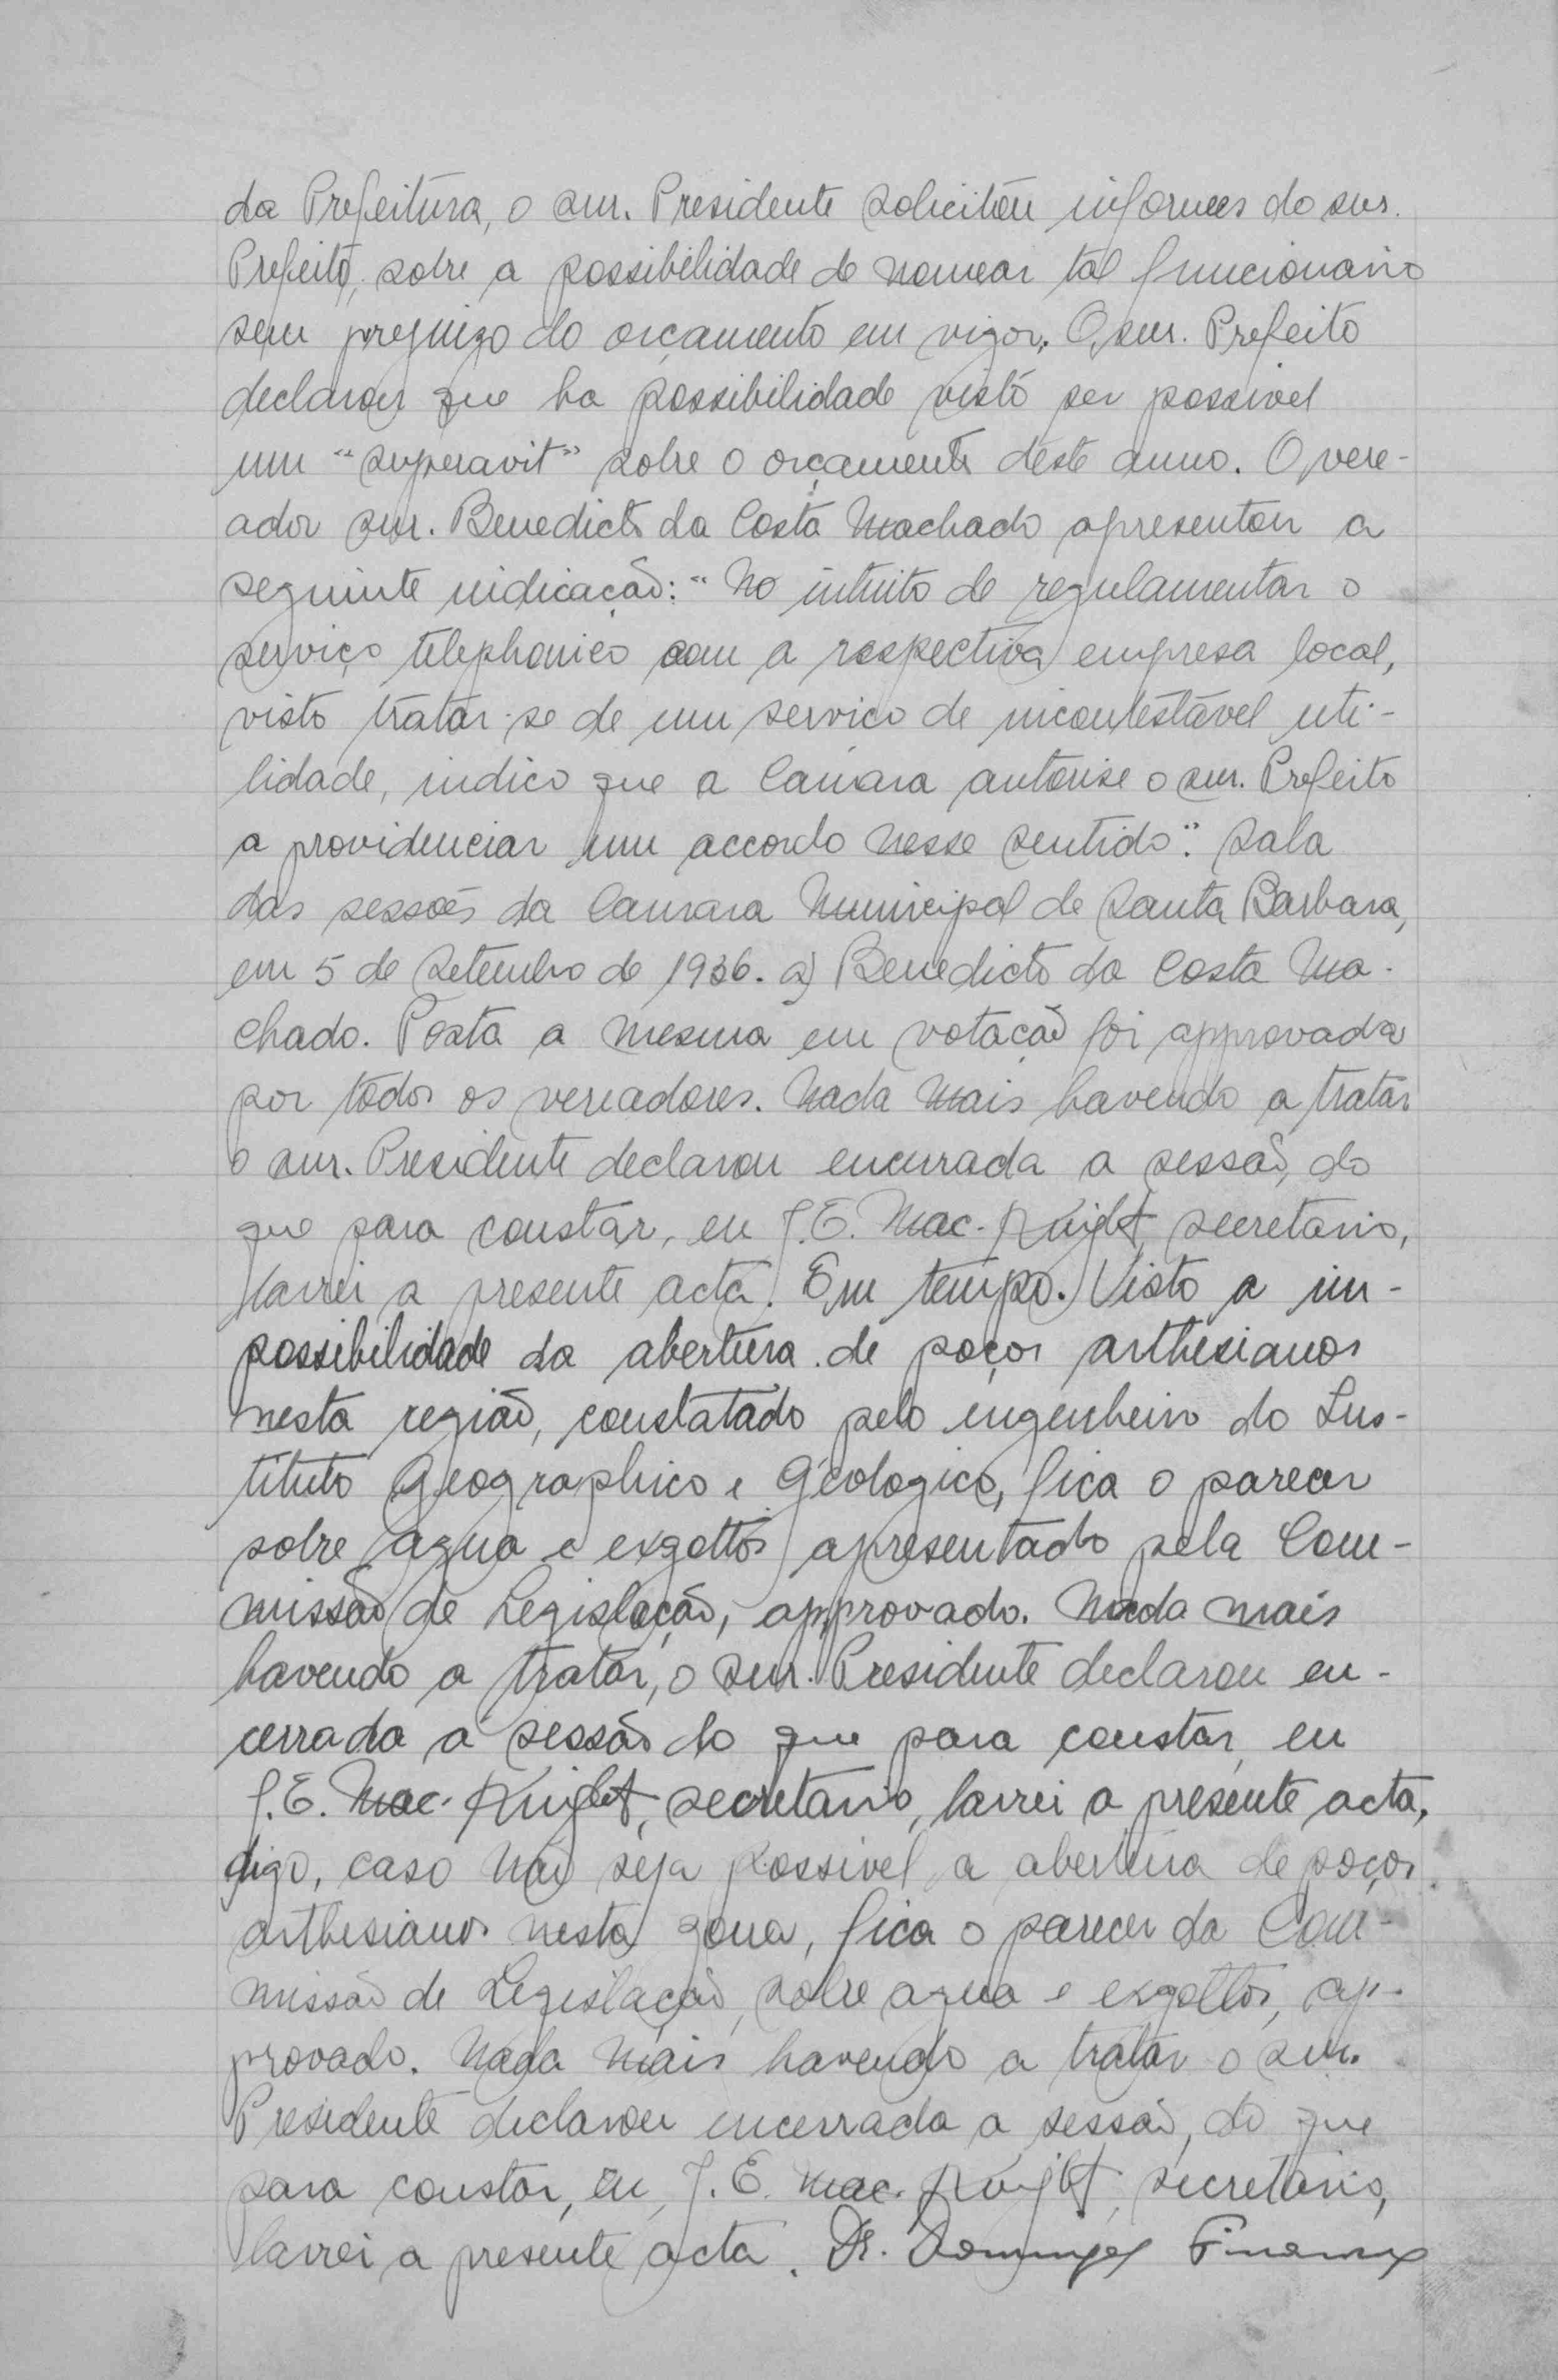 da Prefeitura, o snr. Presidente solicitou informes do snr.
Prefeito, sobre a possibilidade de nomear tal funcionario
sem prejuizo do orçamento em vigor. O snr. Prefeito
declarou que ha possibilidade visto ser possivel
um "superavit" sobre o orçamento deste anno. O vere-
ador snr. Benedicto da Costa Machado apresentou a
seguinte indicação: "No intuito de regulamentar o
serviço telephonico com a respectiva empresa local,
visto tratar-se de um serviço de incontestável uti-
lidade, indico que a Camara autorise o snr. Prefeito
a providenciar um accordo nesse sentido". Sala
das sessões da Camara Municipal de Santa Barbara,
em 5 de Setembro de 1936. a) Benedicto da Costa Ma-
chado. Posta a mesma em votação foi approvada
por todos os vereadores. Nada mais havendo a tratar
o snr. Presidente declarou encerrada a sessão, do
que para constar, eu J.E. Mac-Knight, secretario,
lavrei a presente acta. Em tempo. Visto a im-
possibilidade da abertura de poços arthesianos
nesta região, constatado pelo engenheiro do Ins-
tituto Geographico e Geologico, fica o parecer
sobre agua e exgottos apresentado pela Com-
missão de Legislação, approvado. Nada mais
havendo a tratar, o snr. Presidente declarou en-
cerrada a sessão do que para constar, eu
J.E. Mac-Knight, secretario, lavrei a presente acta,
digo, caso não seja possivel a abertura de poços
arthesianos nesta zona, fica o parecer da Com-
missão de Legislação, sobre agua e exgottos, ap-
provado. Nada mais havendo a tratar o snr.
Presidente declarou encerrada a sessão, do que
para constar, eu, J.E. Mac-Knight, secretario,
lavrei a presente acta. Dr. Domingos